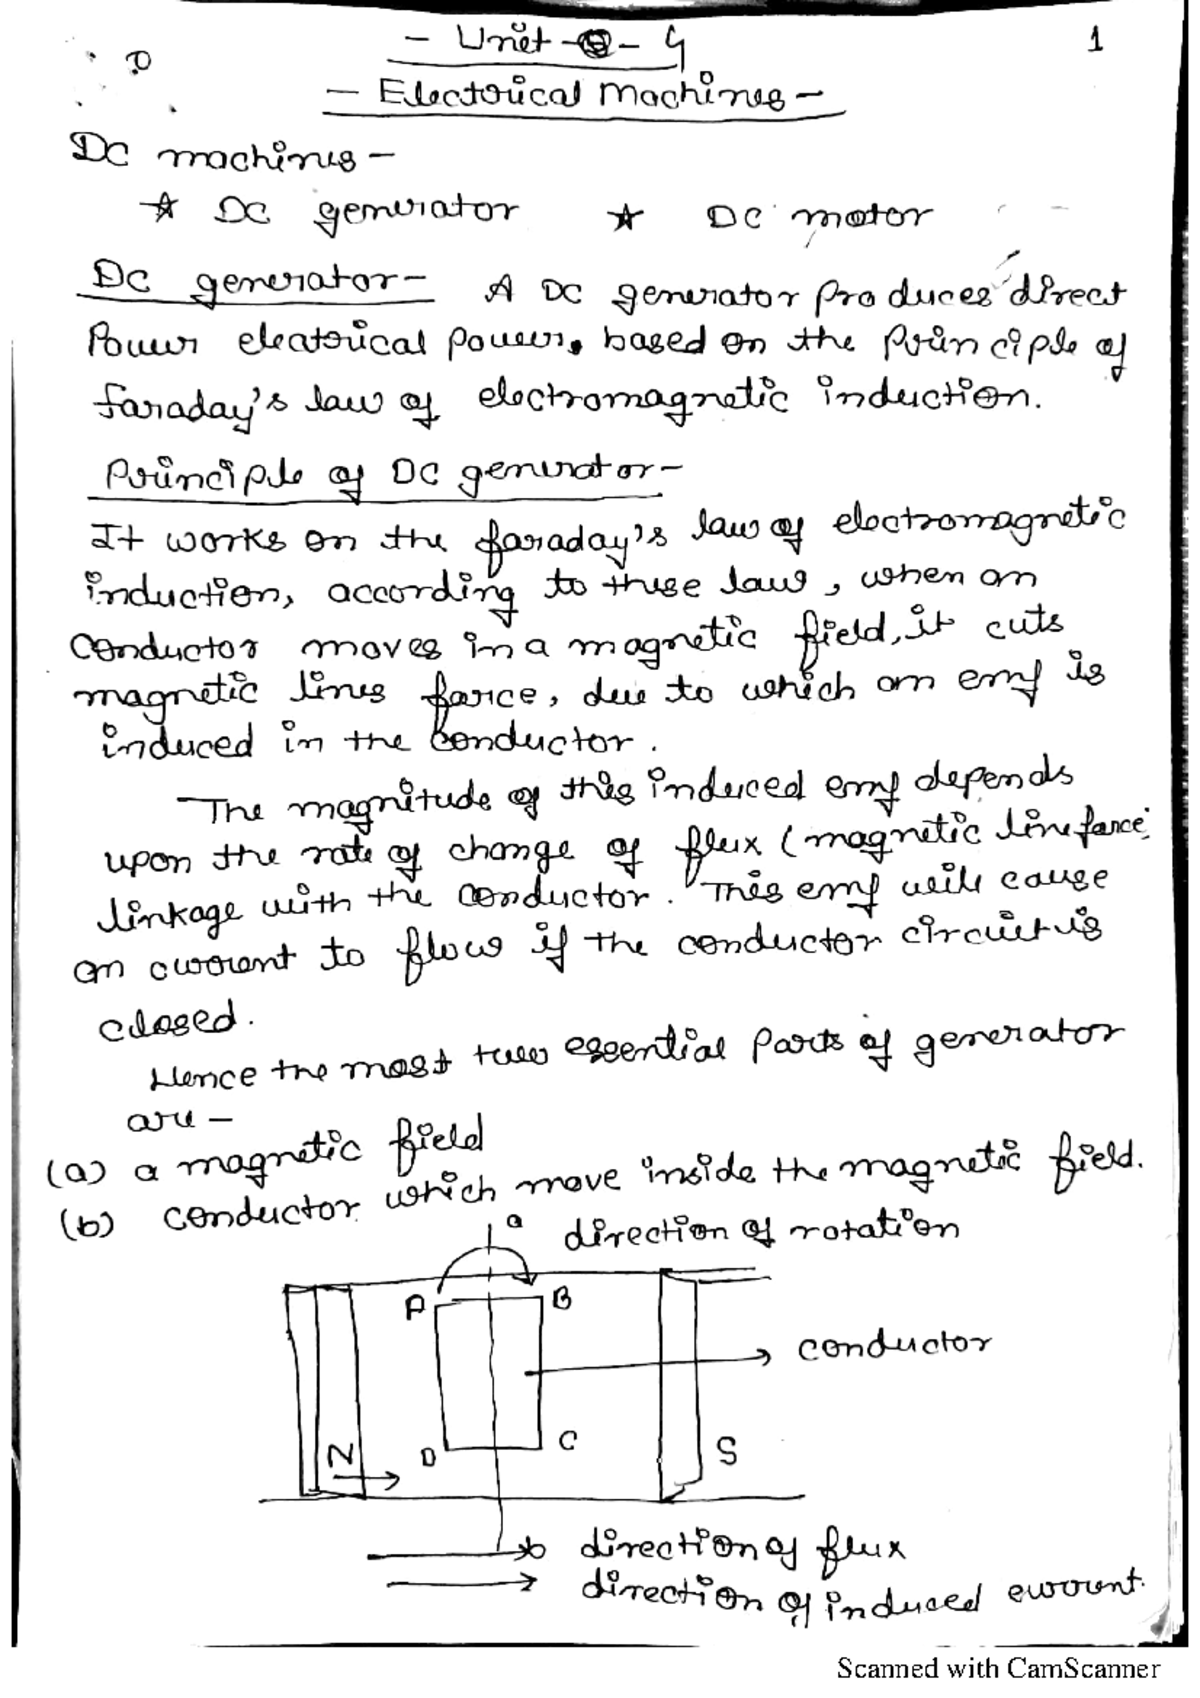 - Unit - 4
1
- Electrical Machines -
DC machines -
☆ DC generator ☆ DC motor
DC generator - A DC generator produces direct
Power electrical power, based on the Principle of
faraday's law of electromagnetic induction.
Principle of DC generator -
It works on the faraday's law of electromagnetic
induction, according to these law, when an
conductor moves in a magnetic field, it cuts
magnetic lines farce, due to which an emf is
induced in the conductor.
The magnitude of this induced emf depends
upon the rate of change of flux (magnetic line farce)
linkage with the conductor. This emf will cause
an current to flow if the conductor circuit is
closed.
Hence the most two essential parts of generator
are -
(a) a magnetic field
(b) conductor which move inside the magnetic field.
a
direction of rotation
A B
conductor
N D C S
direction of flux
direction of induced current.
Scanned with CamScanner